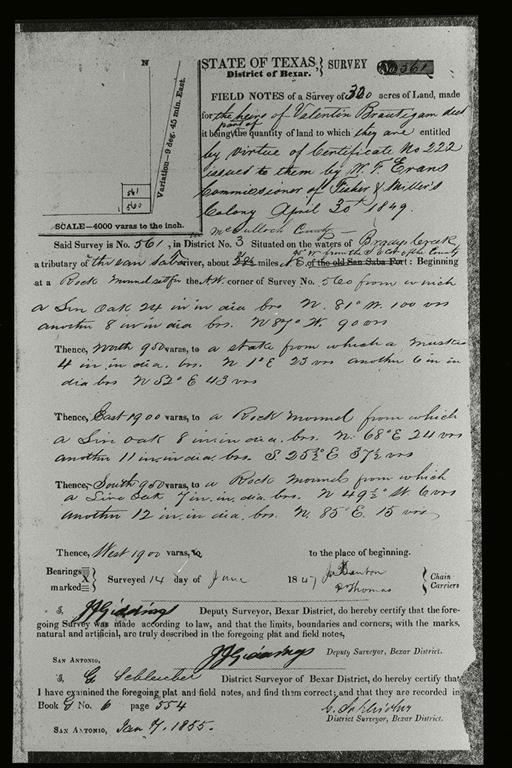 N
STATE OF TEXAS, } SURVEY No 561
District of Bexar.
FIELD NOTES of a Survey of 320 acres of Land, made
for the heirs of Valentin Brautigam decd
it being part of the quantity of land to which they are entitled
by virtue of Certificate No 222
issued to them by W. F. Evans
Commissioner of Fisher & Miller's
Colony April 30th 1849.
Variation—9 deg. 45 min. East.
561
560
SCALE—4000 varas to the inch.
McCulloch County
Said Survey is No. 561, in District No. 3 Situated on the waters of Bradys Creek
a tributary of the San Saba river, about miles N E of the old San Saba Fort: Beginning
at a Rock Mound at for the N.W. corner of Survey No. 560 from which
a Live Oak 24 in in dia brs. N. 81° W. 100 vrs
another 8 in in dia brs. N 87° W. 90 vrs
Thence, North 950 varas, to a stake from which a Muskit
4 in in dia. brs. N 1° E 23 vrs another 6 in in
dia brs N 52° E 43 vrs
Thence, East 1900 varas, to a Rock Mound from which
a Live Oak 8 in in dia. brs. N. 68° E 24 vrs
another 11 in in dia. brs. S 25½° E 37½ vrs
Thence, South 950 varas, to a Rock Mound from which
a Live Oak 7 in. in. dia. brs. N 49½° W. 6 vrs
another 12 in in dia. brs. N. 85° E. 15 vrs
Thence, West 1900 varas, to to the place of beginning.
Bearings X marked Surveyed 14 day of June 1847
Thomas } Chain Carriers
I, J J Giddings Deputy Surveyor, Bexar District, do hereby certify that the fore-
going Survey was made according to law, and that the limits, boundaries and corners, with the marks,
natural and artificial, are truly described in the foregoing plat and field notes,
J J Giddings Deputy Surveyor, Bexar District.
SAN ANTONIO,
I, G. Schleicher District Surveyor of Bexar District, do hereby certify that
I have examined the foregoing plat and field notes, and find them correct; and that they are recorded in
Book G No. 6 page 554
G. Schleicher
District Surveyor, Bexar District.
SAN ANTONIO, Jan 7. 1855.